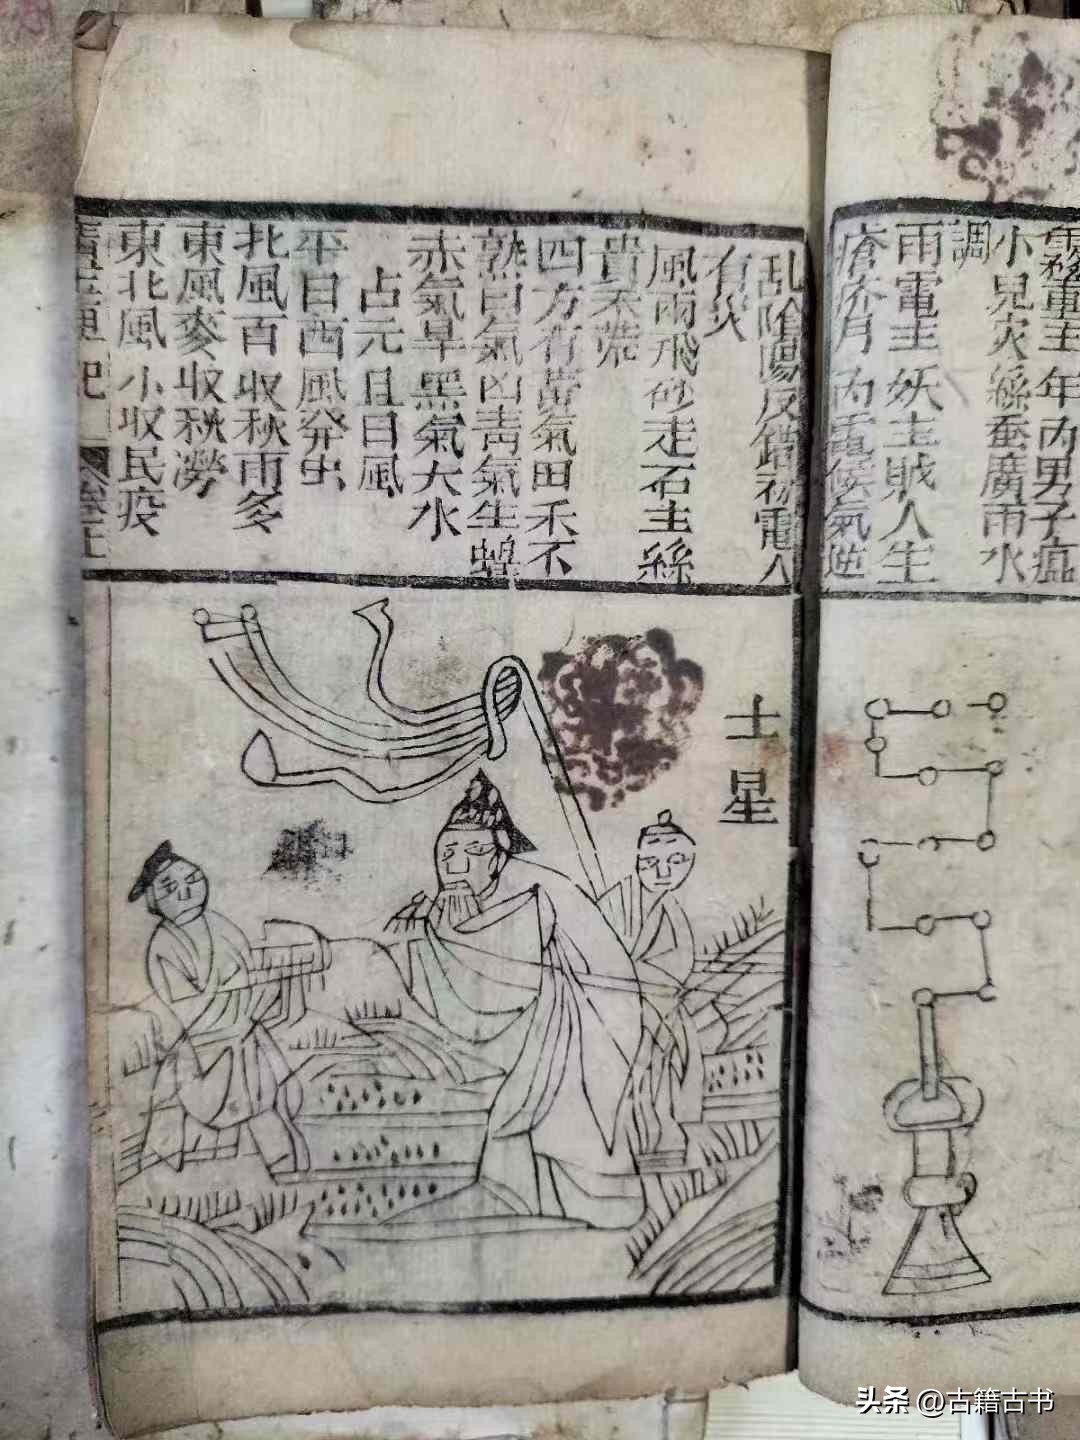 霧重主年內男子瘟
小兒灾絲蚕廣雨水
調
雨電主妖主賊人生
瘡疥月內電候氣逆
乱陰陽反錯初電人
有災
風雨飛砂走石主絲
貴禾荒
四方有黃氣田禾不
熟白氣凶青氣生蝗
赤氣旱黑氣大水
占元旦日風
平日西風発虫
北風百収秋雨多
東風麥収秋澇
東北風小収民疫
匣記 卷上
土星
头条 @古籍古书